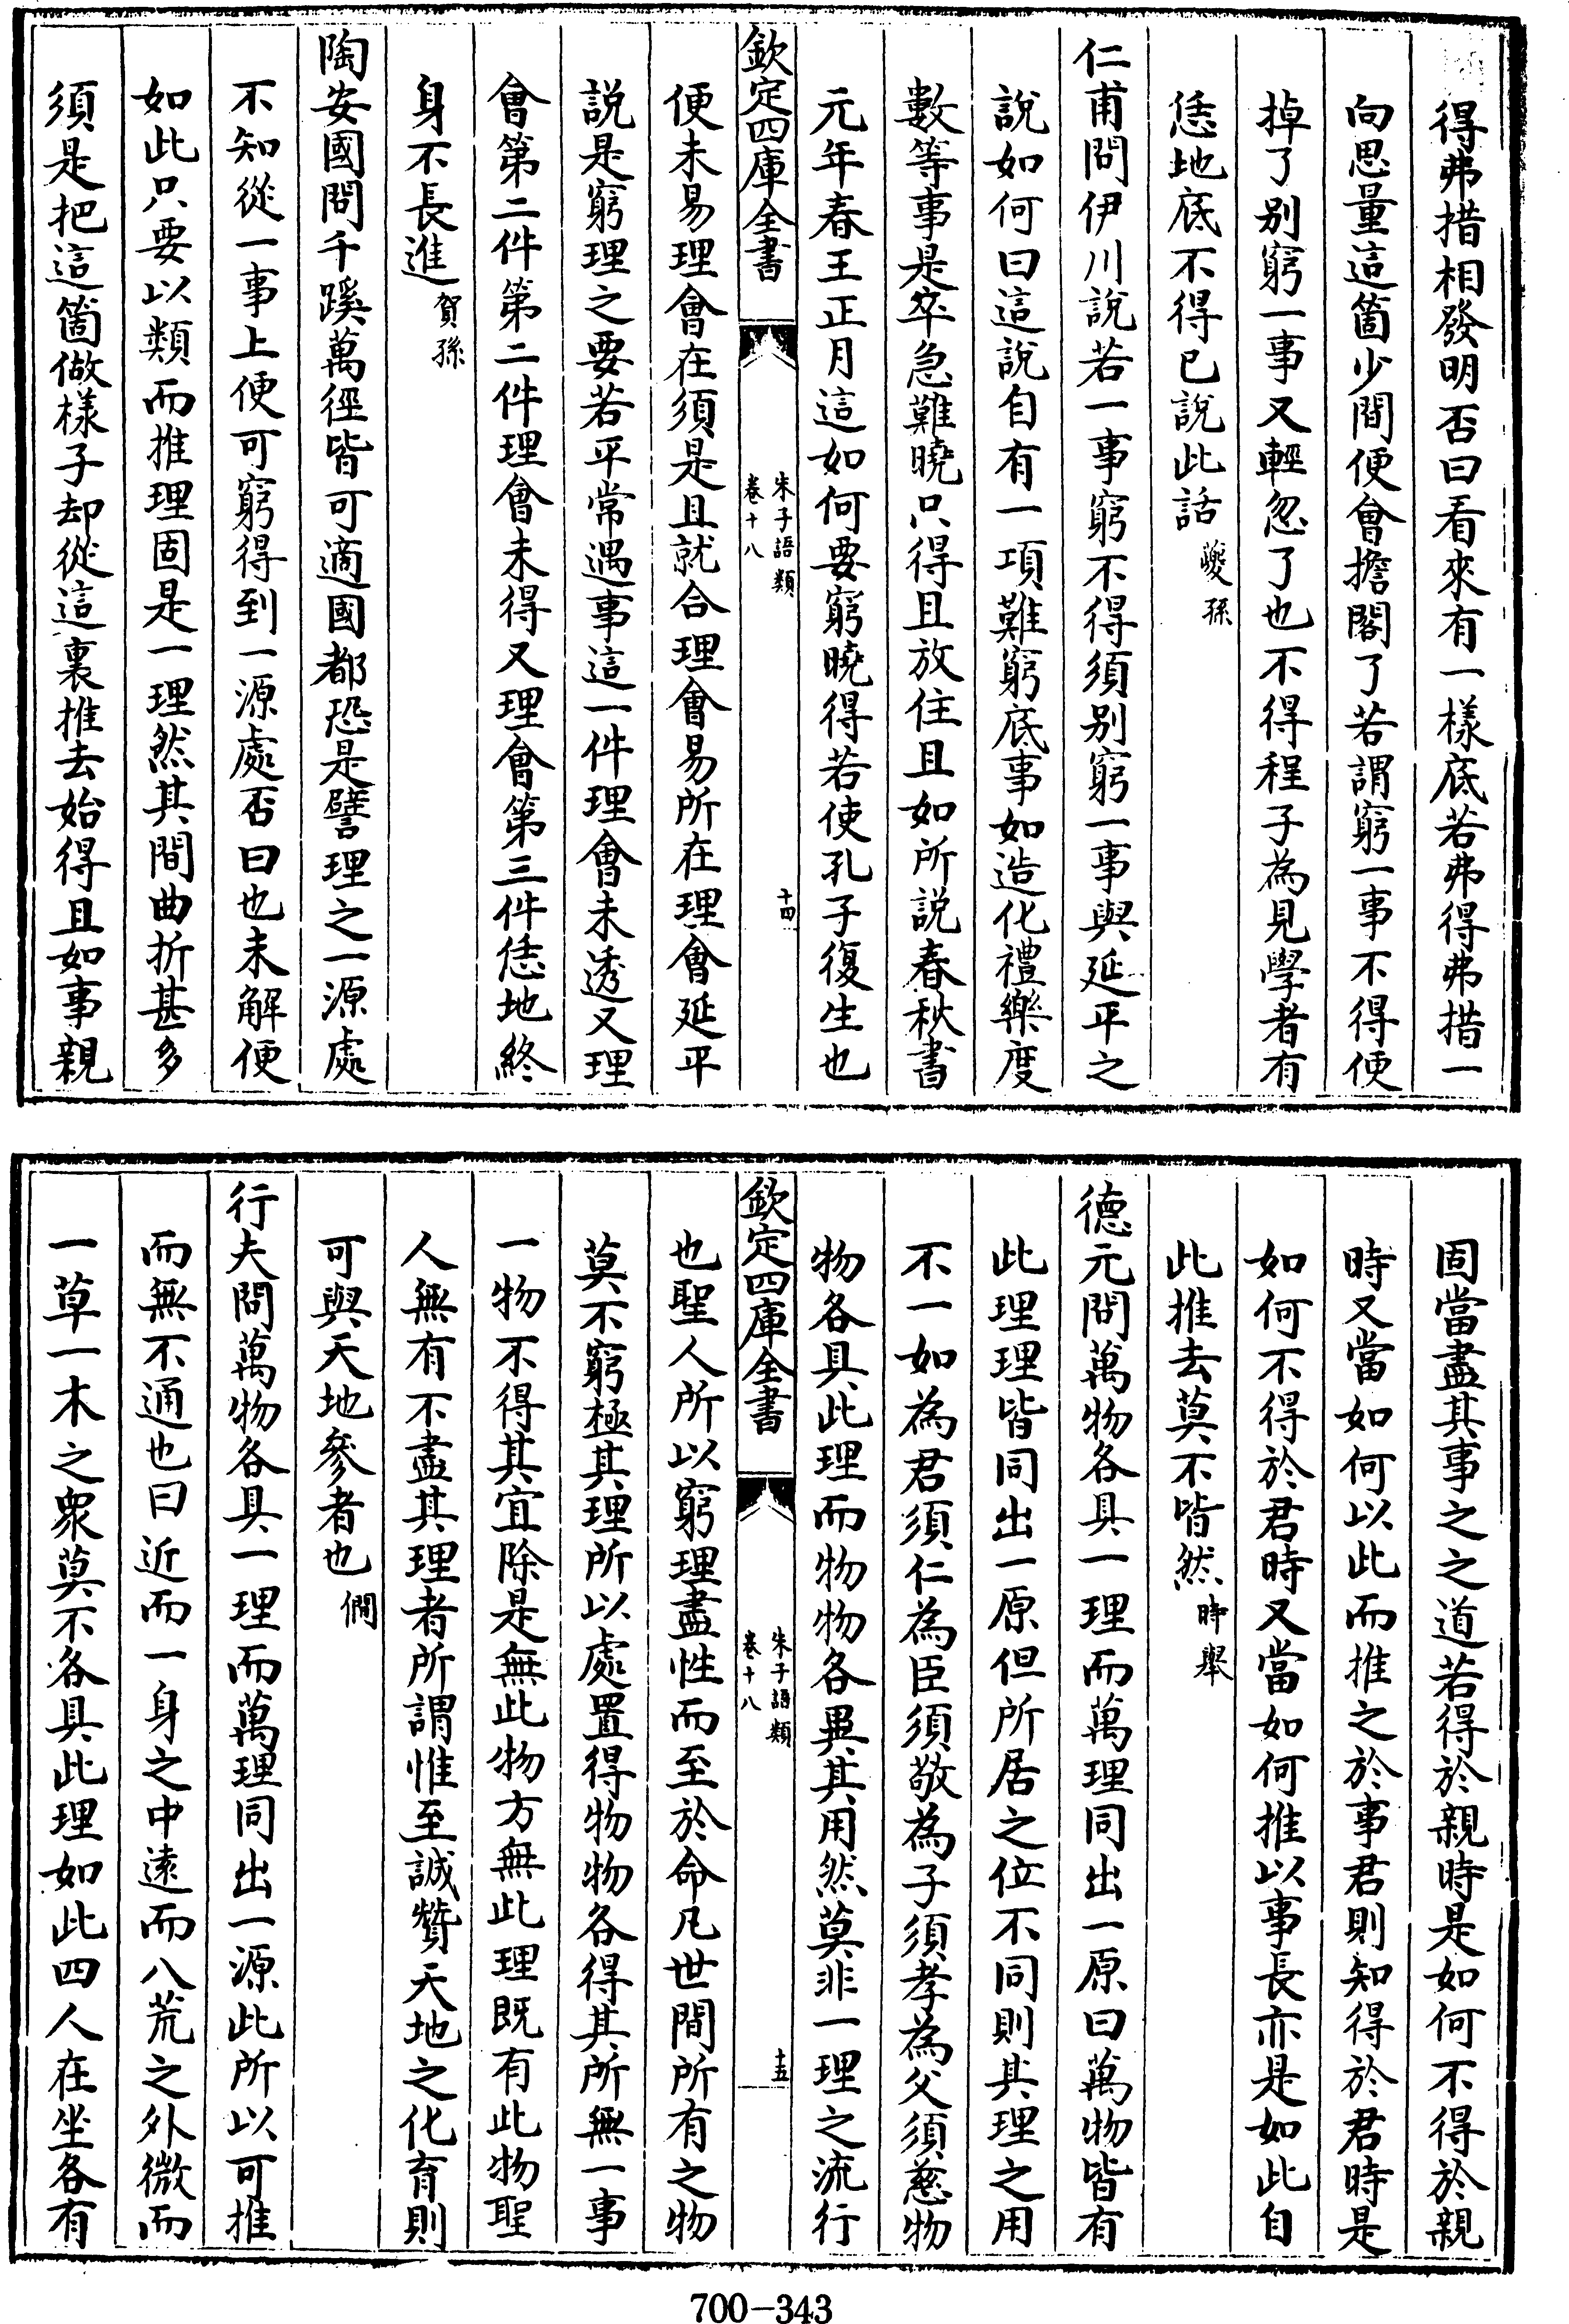 得弗措相發明否曰看來有一樣底若弗得弗措一
向思量這箇少間便會擔閣了若謂窮一事不得便
掉了别窮一事又輕忽了也不得程子為見學者有
恁地底不得已說此話夔孫
仁甫問伊川說若一事窮不得須别窮一事與延平之
說如何曰這說自有一項難窮底事如造化禮樂度
數等事是卒急難曉只得且放住且如所說春秋書
元年春王正月這如何要窮曉得若使孔子復生也
欽定四庫全書
朱子語類
卷十八
十四
便未易理會在須是且就合理會易所在理會延平
說是窮理之要若平常遇事這一件理會未透又理
會第二件第二件理會未得又理會第三件恁地終
身不長進賀孫
陶安國問千蹊萬徑皆可適國都恐是譬理之一源處
不知從一事上便可窮得到一源處否曰也未解便
如此只要以類而推理固是一理然其間曲折甚多
須是把這箇做樣子却從這裏推去始得且如事親
固當盡其事之之道若得於親時是如何不得於親
時又當如何以此而推之於事君則知得於君時是
如何不得於君時又當如何推以事長亦是如此自
此推去莫不皆然時舉
德元問萬物各具一理而萬理同出一原曰萬物皆有
此理理皆同出一原但所居之位不同則其理之用
不一如為君須仁為臣須敬為子須孝為父須慈物
物各具此理而物物各異其用然莫非一理之流行
欽定四庫全書
朱子語類
卷十八
十五
也聖人所以窮理盡性而至於命凡世間所有之物
莫不窮極其理所以處置得物物各得其所無一事
一物不得其宜除是無此物方無此理既有此物聖
人無有不盡其理者所謂惟至誠贊天地之化育則
可與天地參者也僩
行夫問萬物各具一理而萬理同出一源此所以可推
而無不通也曰近而一身之中遠而八荒之外微而
一草一木之衆莫不各具此理如此四人在坐各有
700-343